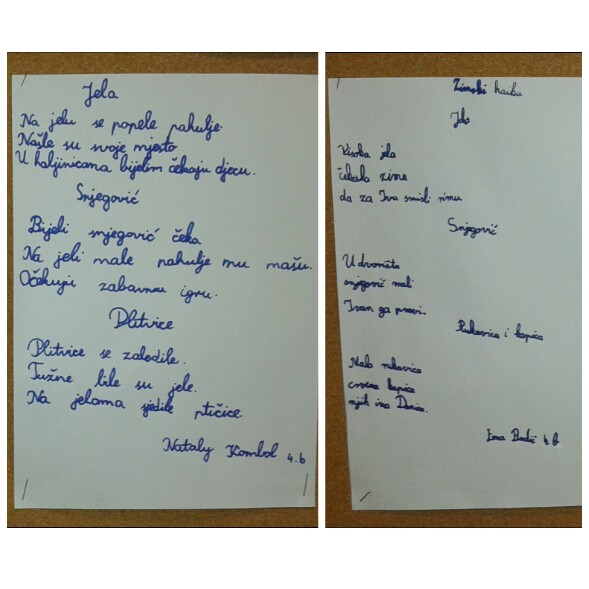 Jela
Na jelu se popele pahulje.
Našle su svoje mjesto
U haljinicama bijelim čekaju djecu.
Snjegović
Bijeli snjegović čeka
Na jeli male pahulje mu mašu.
Očekuju zabavnu igru.
Plitvice
Plitvice se zaledile.
Tužne bile su jele.
Na jelama sjedile ptičice
Nataly Kombol 4.b
Zimski haiku
Jela
Visoka jela
čekala zimu
da za Ivu smisli rimu
Snjegović
U dvorištu
snjegović mali
Ivan ga pravi.
Rukavica i kapica
Mala rukavica
crvena kapica
njih ima Danica.
Ema 4.b